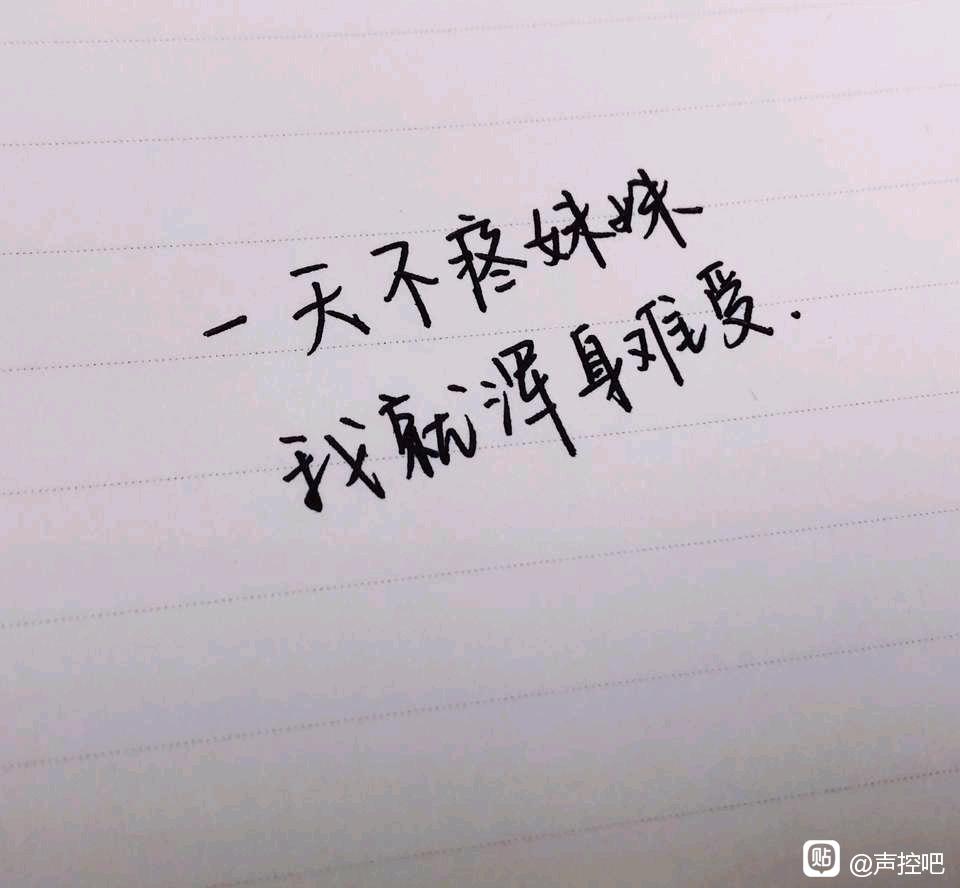 一天不疼妹妹
我就浑身难受.
贴 @声控吧